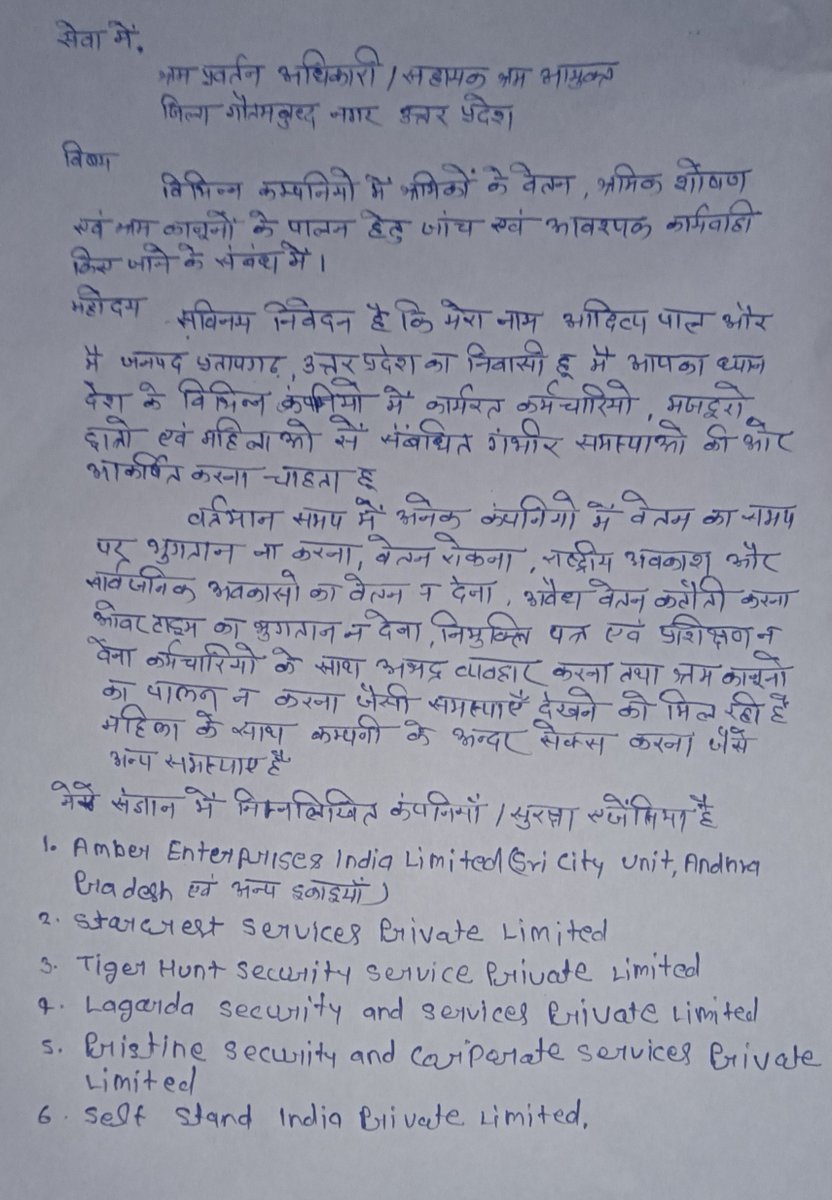 सेवा में,
श्रम प्रवर्तन अधिकारी / सहायक श्रम आयुक्त
जिला गौतमबुध्द नगर उत्तर प्रदेश
विषय
विभिन्न कम्पनियो में श्रमिकों के वेतन, श्रमिक शोषण
एवं श्रम कानूनों के पालन हेतु जांच एवं आवश्यक कार्यवाही
किए जाने के संबंध में।
महोदय सविनय निवेदन है कि मेरा नाम आदित्य पाल और
मै जनपद प्रतापगढ़, उत्तर प्रदेश का निवासी हू मै आपका ध्यान
देश के विभिन्न कंपनियो में कार्यरत कर्मचारियो, मजदूरो,
छात्रो एवं महिलाओ से संबंधित गंभीर समस्याओ की ओर
आकर्षित करना चाहता हू
वर्तमान समय में अनेक कंपनियो में वेतन का समय
पर भुगतान ना करना, वेतन रोकना, राष्ट्रीय अवकाश और
सार्वजनिक अवकासो का वेतन न देना, अवैध वेतन कटौती करना
ओवर टाइम का भुगतान न देना, नियुक्ति पत्र एवं प्रशिक्षण न
देना कर्मचारियो के साथ अभद्र व्यवहार करना तथा श्रम कानूनो
का पालन न करना जैसी समस्याएँ देखने को मिल रही है
महिला के साथ कम्पनी के अन्दर सेक्स करना जैसे
अन्य समस्याए है
मेरे संज्ञान में निम्नलिखित कंपनियाँ / सुरक्षा एजेंसिया है
1. Amber Enterprises India Limited (Sri City Unit, Andhra
Pradesh एवं अन्य इकाइयाँ)
2. Starcrest Services Private Limited
3. Tiger Hunt Security Service Private Limited
4. Lagarda Security and Services Private Limited
5. Pristine Security and Corporate Services Private
Limited
6. Self Stand India Private Limited.